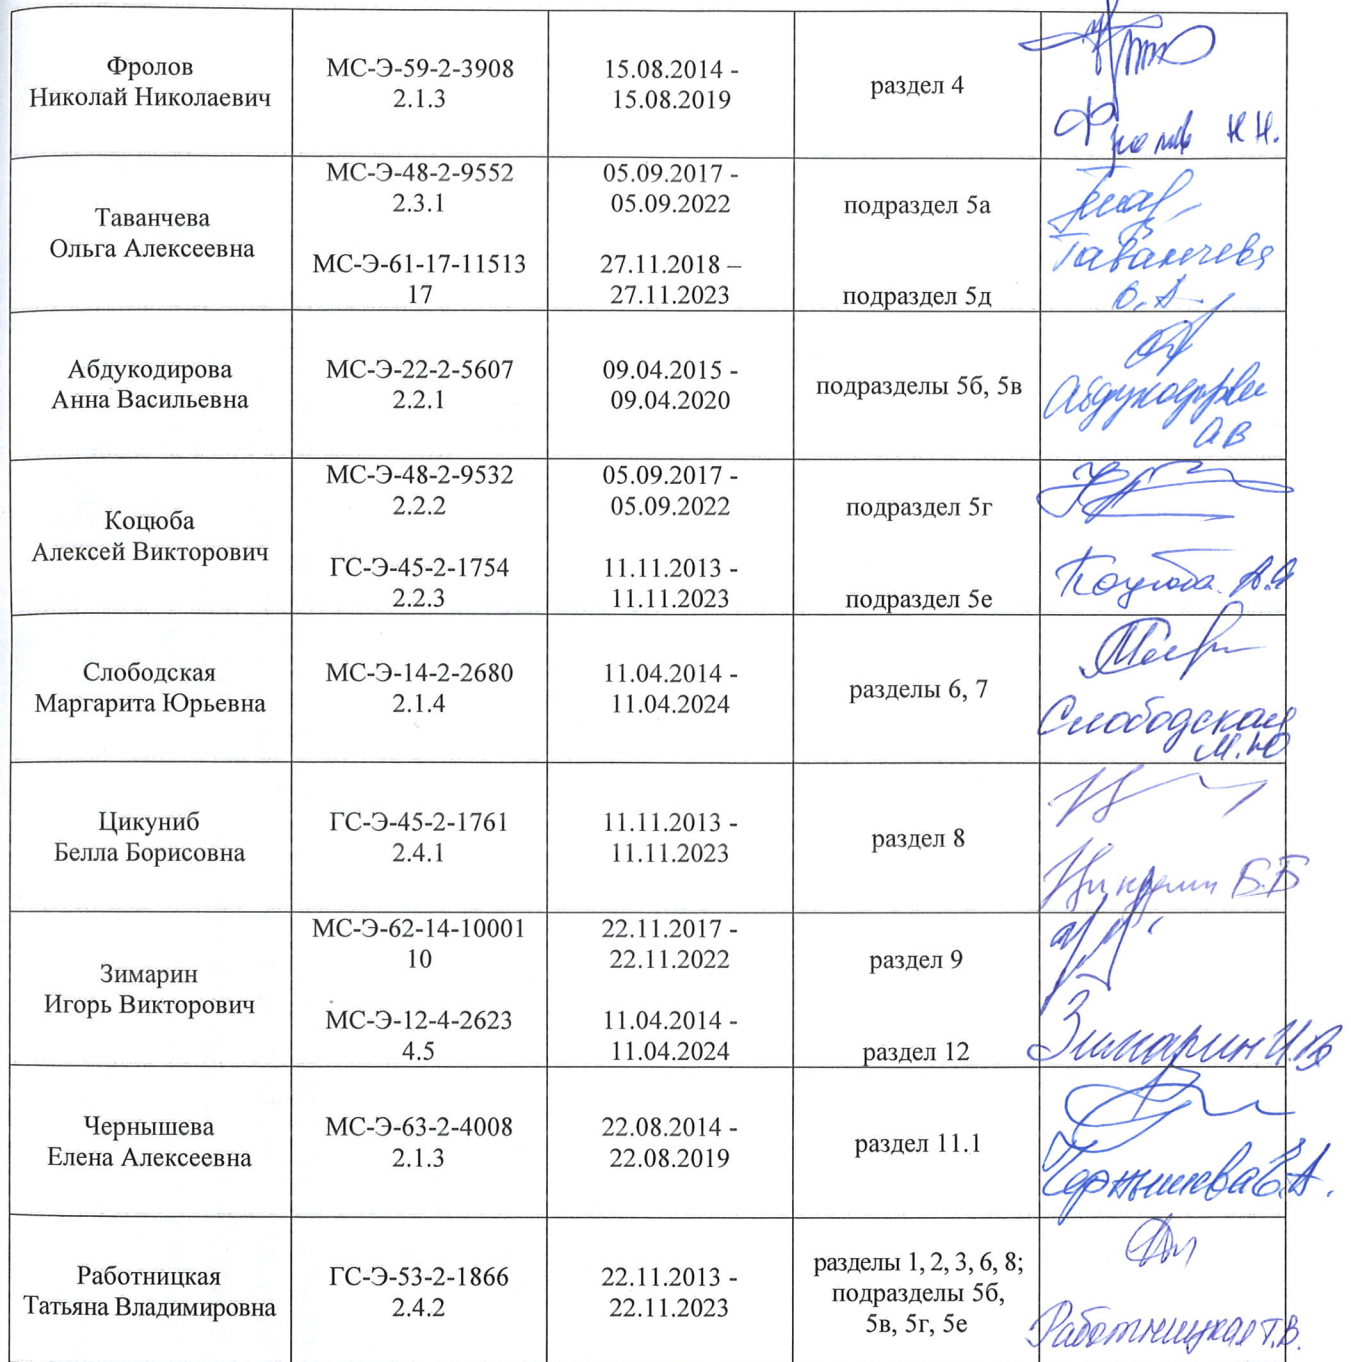 Фролов
Николай Николаевич
МС-Э-59-2-3908
2.1.3
15.08.2014 -
15.08.2019
раздел 4
Фролов Н.Н.
Таванчева
Ольга Алексеевна
МС-Э-48-2-9552
2.3.1
05.09.2017 -
05.09.2022
подраздел 5а
МС-Э-61-17-11513
17
27.11.2018 –
27.11.2023
подраздел 5д
Таванчева
О.А.
Абдукодирова
Анна Васильевна
МС-Э-22-2-5607
2.2.1
09.04.2015 -
09.04.2020
подразделы 5б, 5в
АВ
Коцюба
Алексей Викторович
МС-Э-48-2-9532
2.2.2
05.09.2017 -
05.09.2022
подраздел 5г
ГС-Э-45-2-1754
2.2.3
11.11.2013 -
11.11.2023
подраздел 5е
Коцюба
Слободская
Маргарита Юрьевна
МС-Э-14-2-2680
2.1.4
11.04.2014 -
11.04.2024
разделы 6, 7
Слободская
М.Ю
Цикуниб
Белла Борисовна
ГС-Э-45-2-1761
2.4.1
11.11.2013 -
11.11.2023
раздел 8
Цикуниб Б.Б
Зимарин
Игорь Викторович
МС-Э-62-14-10001
10
22.11.2017 -
22.11.2022
раздел 9
МС-Э-12-4-2623
4.5
11.04.2014 -
11.04.2024
раздел 12
Зимарин И.В
Чернышева
Елена Алексеевна
МС-Э-63-2-4008
2.1.3
22.08.2014 -
22.08.2019
раздел 11.1
Чернышева Е.А.
Работницкая
Татьяна Владимировна
ГС-Э-53-2-1866
2.4.2
22.11.2013 -
22.11.2023
разделы 1, 2, 3, 6, 8;
подразделы 5б,
5в, 5г, 5е
Работницкая Т.В.